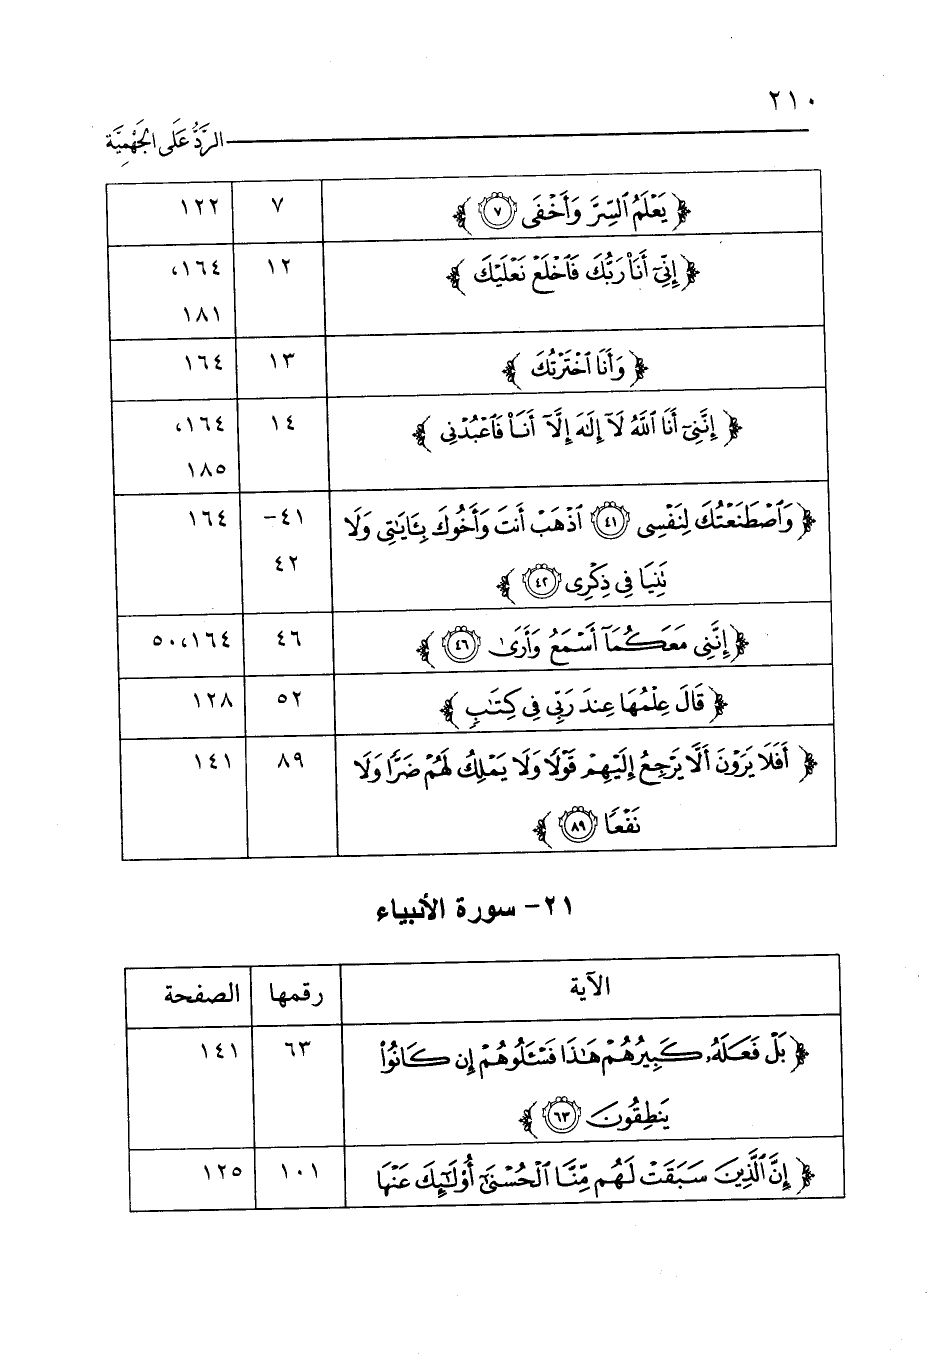 ٢١٠
الرَّدُّ عَلَى الجَهْمِيَّة
﴿ يَعْلَمُ ٱلسِّرَّ وَأَخْفَى ٧ ﴾ ٧ ١٢٢
﴿ إِنِّىٓ أَنَا۠ رَبُّكَ فَٱخْلَعْ نَعْلَيْكَ ﴾ ١٢ ١٦٤،
١٨١
﴿ وَأَنَا ٱخْتَرْتُكَ ﴾ ١٣ ١٦٤
﴿ إِنَّنِىٓ أَنَا ٱللَّهُ لَآ إِلَٰهَ إِلَّآ أَنَا۠ فَٱعْبُدْنِى ﴾ ١٤ ١٦٤،
١٨٥
﴿ وَٱصْطَنَعْتُكَ لِنَفْسِى ٤١ ٱذْهَبْ أَنتَ وَأَخُوكَ بِـَٔايَٰتِى وَلَا ٤١- ١٦٤
تَنِيَا فِى ذِكْرِى ٤٢ ﴾ ٤٢
﴿ إِنَّنِى مَعَكُمَآ أَسْمَعُ وَأَرَىٰ ٤٦ ﴾ ٤٦ ١٦٤،٥٠
﴿ قَالَ عِلْمُهَا عِندَ رَبِّى فِى كِتَٰبٍ ﴾ ٥٢ ١٢٨
﴿ أَفَلَا يَرَوْنَ أَلَّا يَرْجِعُ إِلَيْهِمْ قَوْلًا وَلَا يَمْلِكُ لَهُمْ ضَرًّا وَلَا ٨٩ ١٤١
نَفْعًا ٨٩ ﴾
٢١- سورة الأنبياء
الآية رقمها الصفحة
﴿ بَلْ فَعَلَهُۥ كَبِيرُهُمْ هَٰذَا فَسْـَٔلُوهُمْ إِن كَانُوا۟ ٦٣ ١٤١
يَنطِقُونَ ٦٣ ﴾
﴿ إِنَّ ٱلَّذِينَ سَبَقَتْ لَهُم مِّنَّا ٱلْحُسْنَىٰٓ أُو۟لَٰٓئِكَ عَنْهَا ١٠١ ١٢٥